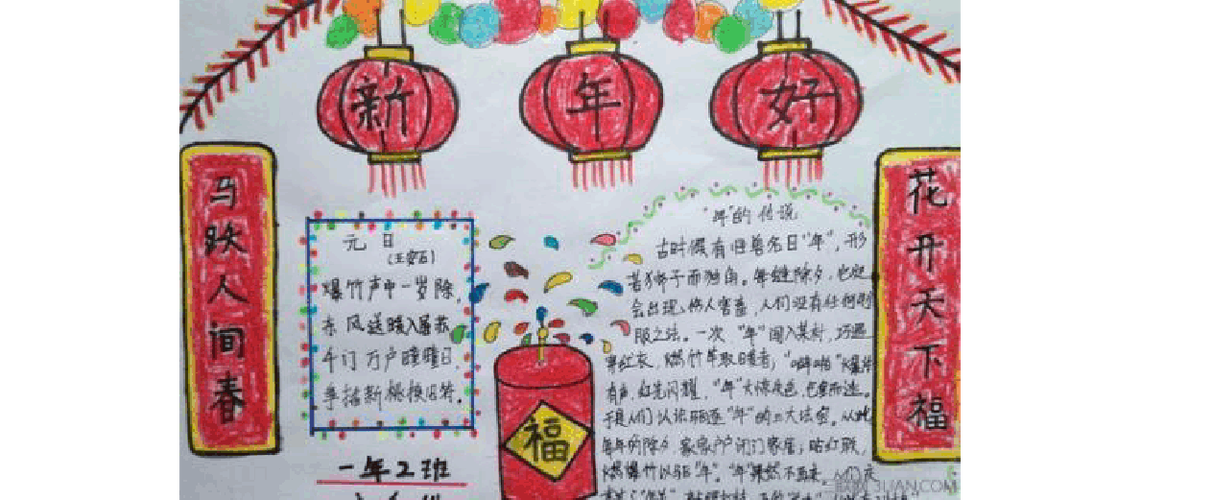 新年好
马跃人间春
花开天下福
元日
(王安石)
爆竹声中一岁除,
东风送暖入屠苏
千门万户瞳瞳日,
争插新桃换旧符。
福
一年2班
"年"的传说
古时候有 兽名曰"年",形
若狮子而独角。每逢除夕,它
会出现,伤人害畜,人们没有任何
服之法。一次 "年"闯入某村,巧遇
穿红衣,燃竹竿取暖者;"噼啪"爆
有声,红光闪耀,"年"大惊失色,
于是人们认识 "年"的三大法宝。从此
每年的除夕,家家户户闭门 ;贴红联,
燃爆竹以驱"年"。"年"果然不再来,人们
3LIAN.COM